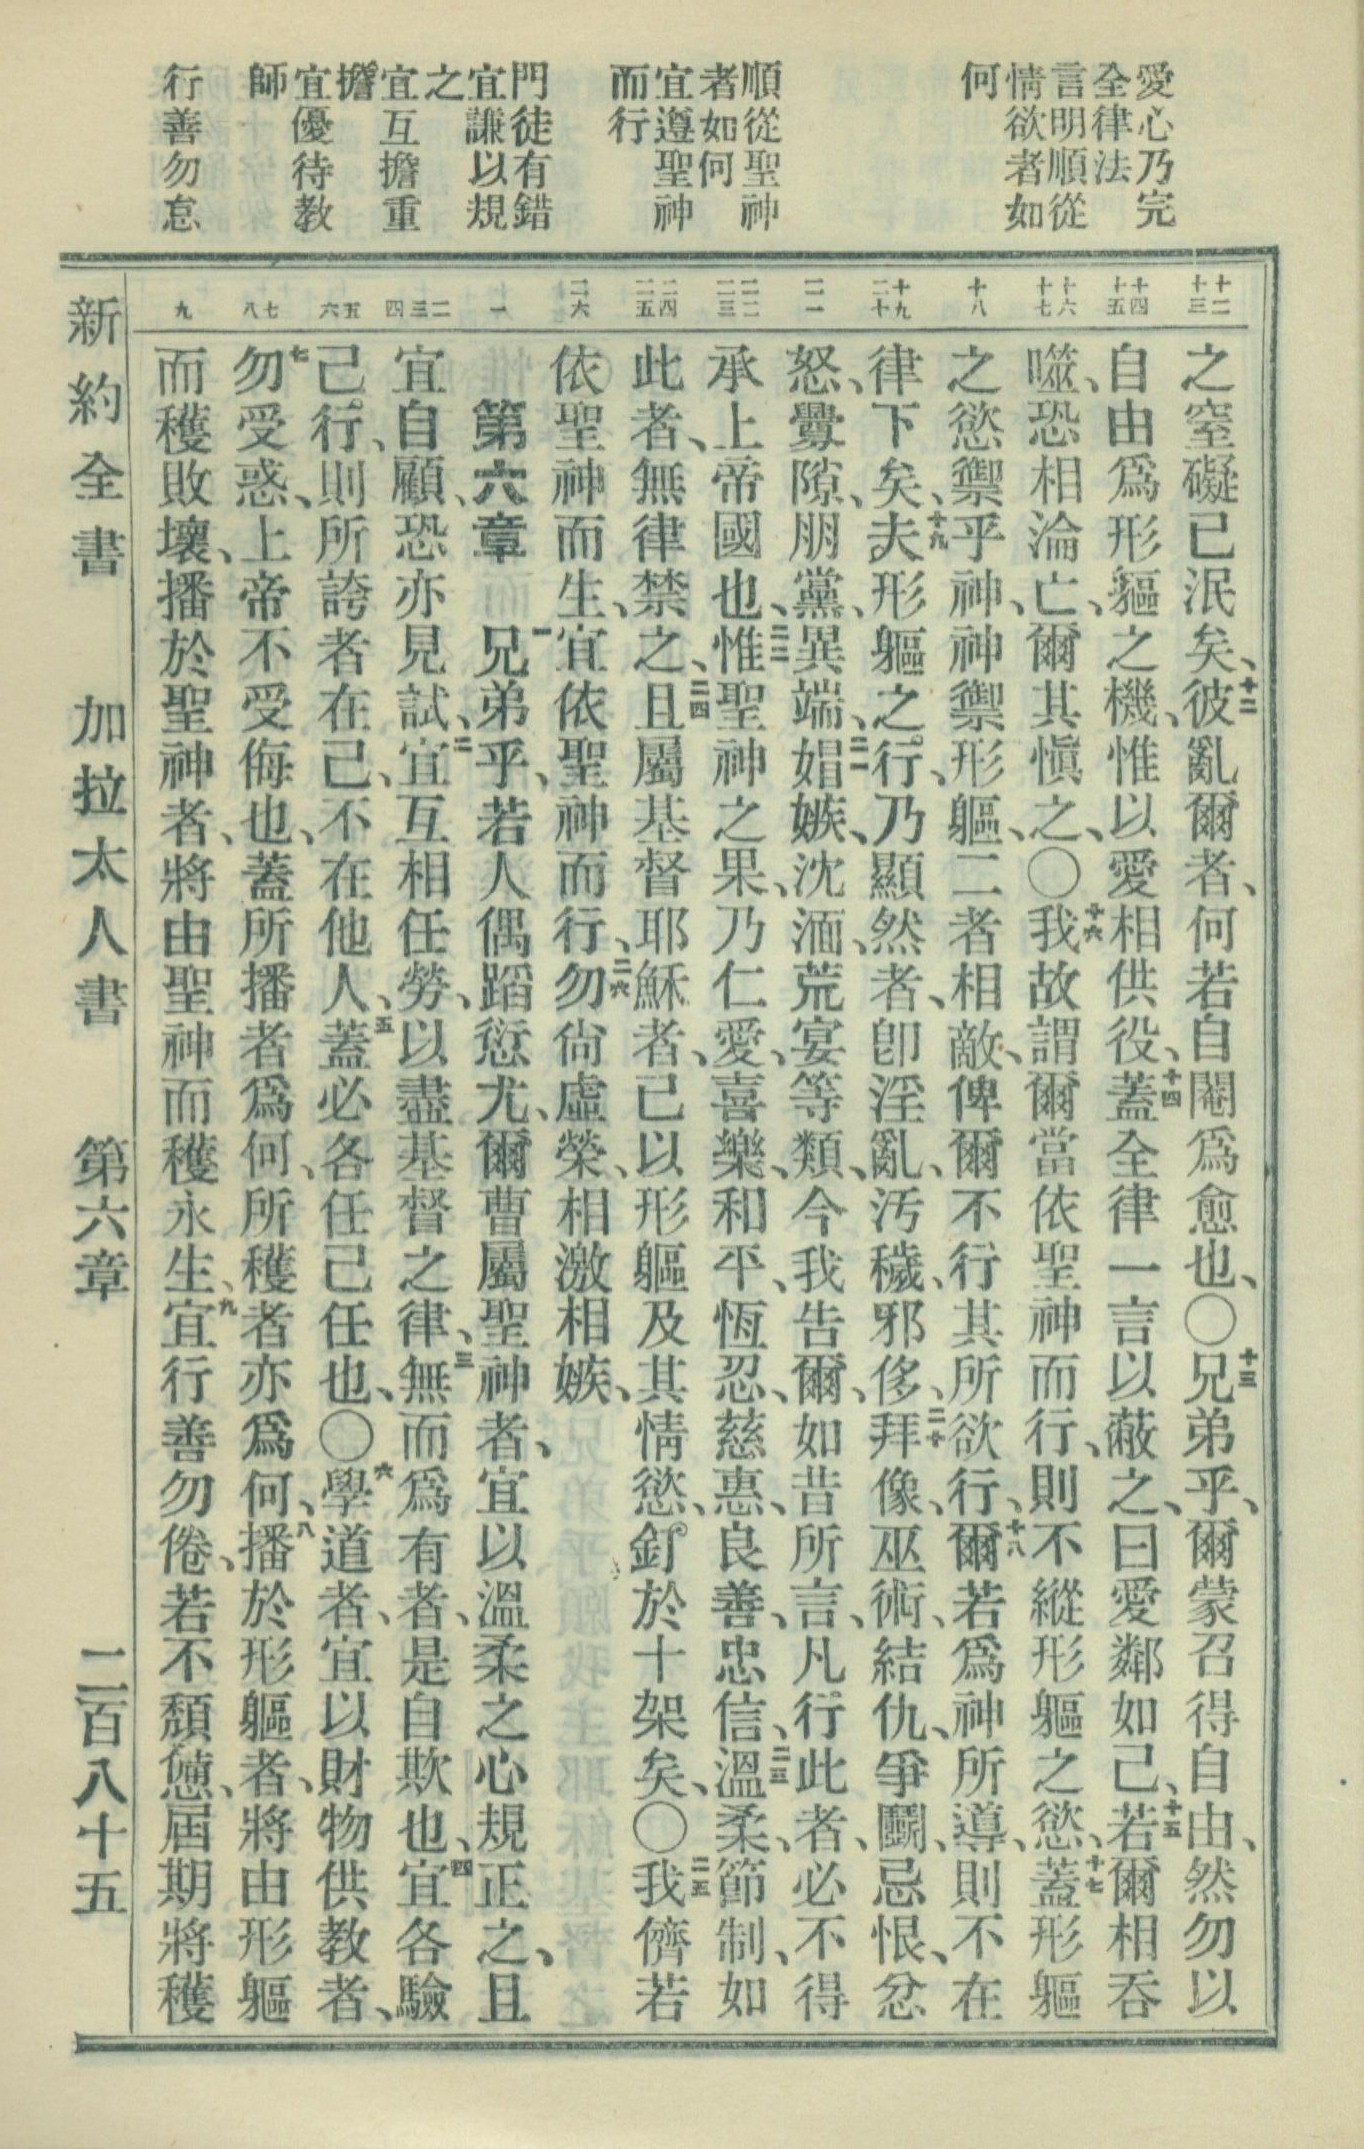 愛心乃完
全律法
言明順從
情欲者如
何
順從聖神
者如何
宜遵聖神
而行
門徒有錯
宜謙以規
之
宜互擔重
擔
宜優待教
師
行善勿怠
十二
十三
十四
十五
十六
十七
十八
十九
二十
二一
二二
二三
二四
二五
二六
一
二
三
四
五
六
七
八
九
之窒礙已泯矣、十二彼亂爾者、何若自閹爲愈也、〇十三兄弟乎、爾蒙召得自由、然勿以
自由爲形軀之機、惟以愛相供役、十四蓋全律一言以蔽之、曰愛鄰如己、十五若爾相吞
噬、恐相淪亡、爾其愼之、〇十六我故謂爾當依聖神而行、則不縱形軀之慾、十七蓋形軀
之慾禦乎神、神禦形軀、二者相敵、俾爾不行其所欲行、十八爾若爲神所導、則不在
律下矣、十九夫形軀之行、乃顯然者、卽淫亂、汚穢、邪侈、二十拜像、巫術、結仇、爭鬭、忌恨、忿
怒、釁隙、朋黨、異端、二一娼嫉、沈湎、荒宴等類、今我告爾、如昔所言、凡行此者、必不得
承上帝國也、二二惟聖神之果、乃仁愛、喜樂、和平、恆忍、慈惠、良善、忠信、二三溫柔、節制、如
此者、無律禁之、二四且屬基督耶穌者、已以形軀及其情慾、釘於十架矣、〇二五我儕若
依聖神而生、宜依聖神而行、二六勿尙虛榮、相激相嫉、
第六章 一兄弟乎、若人偶蹈愆尤、爾曹屬聖神者、宜以溫柔之心規正之、且
宜自顧、恐亦見試、二宜互相任勞、以盡基督之律、三無而爲有者、是自欺也、四宜各驗
己行、則所誇者在己、不在他人、五蓋必各任己任也、〇六學道者、宜以財物供教者、
七勿受惑、上帝不受侮也、蓋所播者爲何、所穫者亦爲何、八播於形軀者、將由形軀
而穫敗壞、播於聖神者、將由聖神而穫永生、九宜行善勿倦、若不頹憊、屆期將穫
新約全書 加拉太人書 第六章 二百八十五